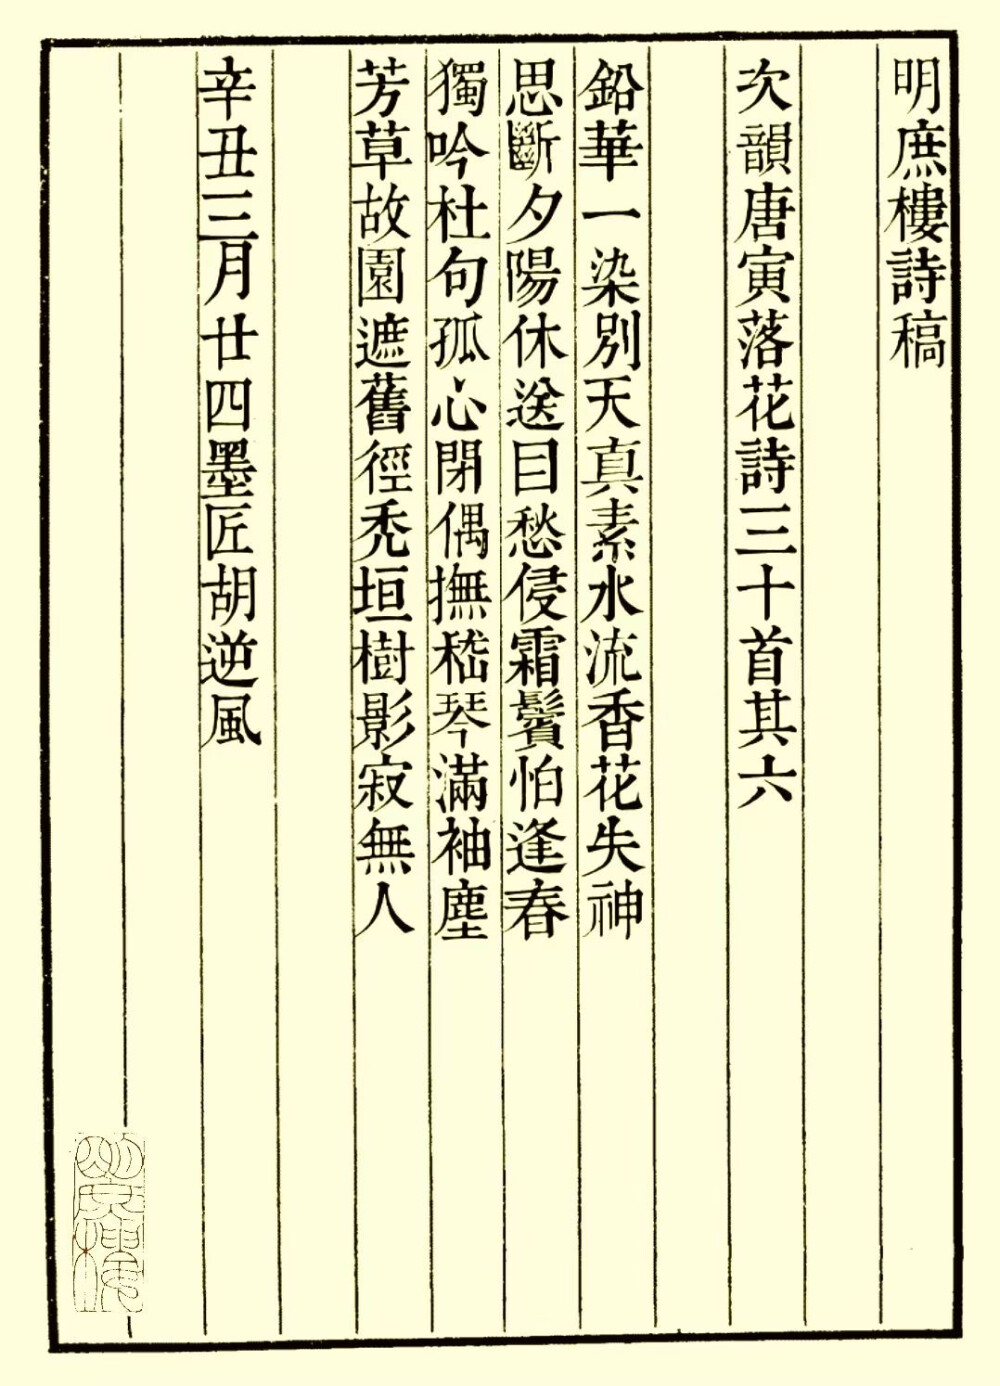 明庶樓詩稿
次韻唐寅落花詩三十首其六
鉛華一染別天真素水流香花失神
思斷夕陽休送目愁侵霜鬢怕逢春
獨吟杜句孤心閉偶撫嵇琴滿袖塵
芳草故園遮舊徑禿垣樹影寂無人
辛丑三月廿四墨匠胡逆風